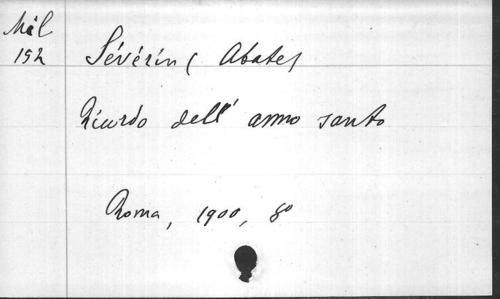 Mél
152
Sévérin (Abate)
Ricordo dell' anno santo
Roma, 1900, 8º